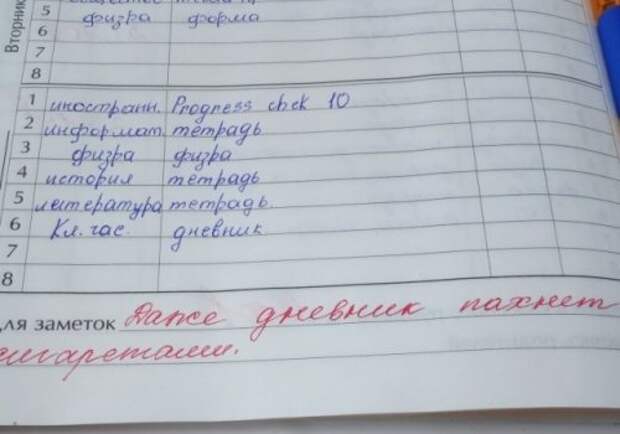 Вторник
5 физра форма
6
7
8
1 иностранн. Progress chek 10
2 информат. тетрадь
3 физра физра
4 история тетрадь
5 литература тетрадь.
6 Кл. час. дневник
7
8
ля заметок Даже дневник пахнет
сигаретами.